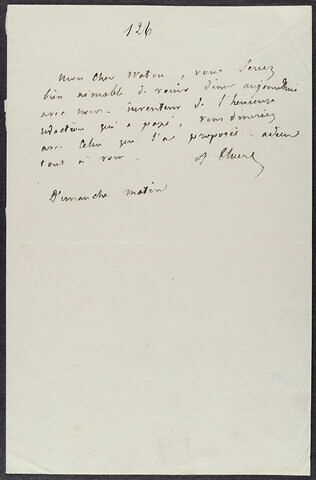 126
mon cher Watou, vous seriez
bien aimable de venir diner aujourdhui
avec nous. inventeur de l'heureuse
rédaction qui a passé, vous dineriez
avec celui qui l'a proposée. adieu
tout à vous.
Dimanche matin